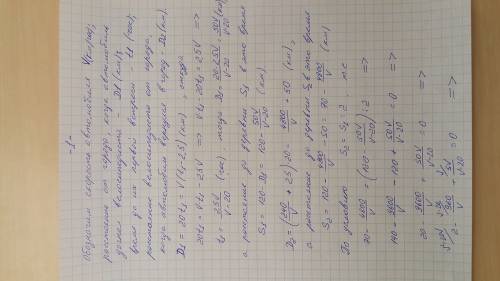 -1-
Обозначим скорость автомобиля V(км/час);
расстояние от города, когда автомобиль
догнал велосипедиста - D1 (км);
время до их первой встречи - t1 (час);
расстояние велосипедиста от города,
когда автомобиль вернулся в город - D2 (км).
D1 = 20t1 = V(t1-2,5) (км), откуда
20t1 = Vt1 - 2,5V => Vt1 - 20t1 = 2,5V =>
t1 = 2,5V/(V-20) (час), тогда D1 = 20·2,5V/(V-20) = 50V/(V-20) (км),
а расстояние до деревни S1 в это время
S1 = 120 - D1 = 120 - 50V/(V-20) (км).
D2 = (240/V + 2,5)·20 = 4800/V + 50 (км),
а расстояние до деревни S2 в это время
S2 = 120 - 4800/V - 50 = 70 - 4800/V (км)
По условию S2 = S1 : 2, т.е.
70 - 4800/V = (120 - 50V/(V-20)) : 2 =>
140 - 9600/V - 120 + 50V/(V-20) = 0 =>
20 - 9600/V + 50V/(V-20) = 0 =>
2 - 960/V + 5V/(V-20) = 0 =>